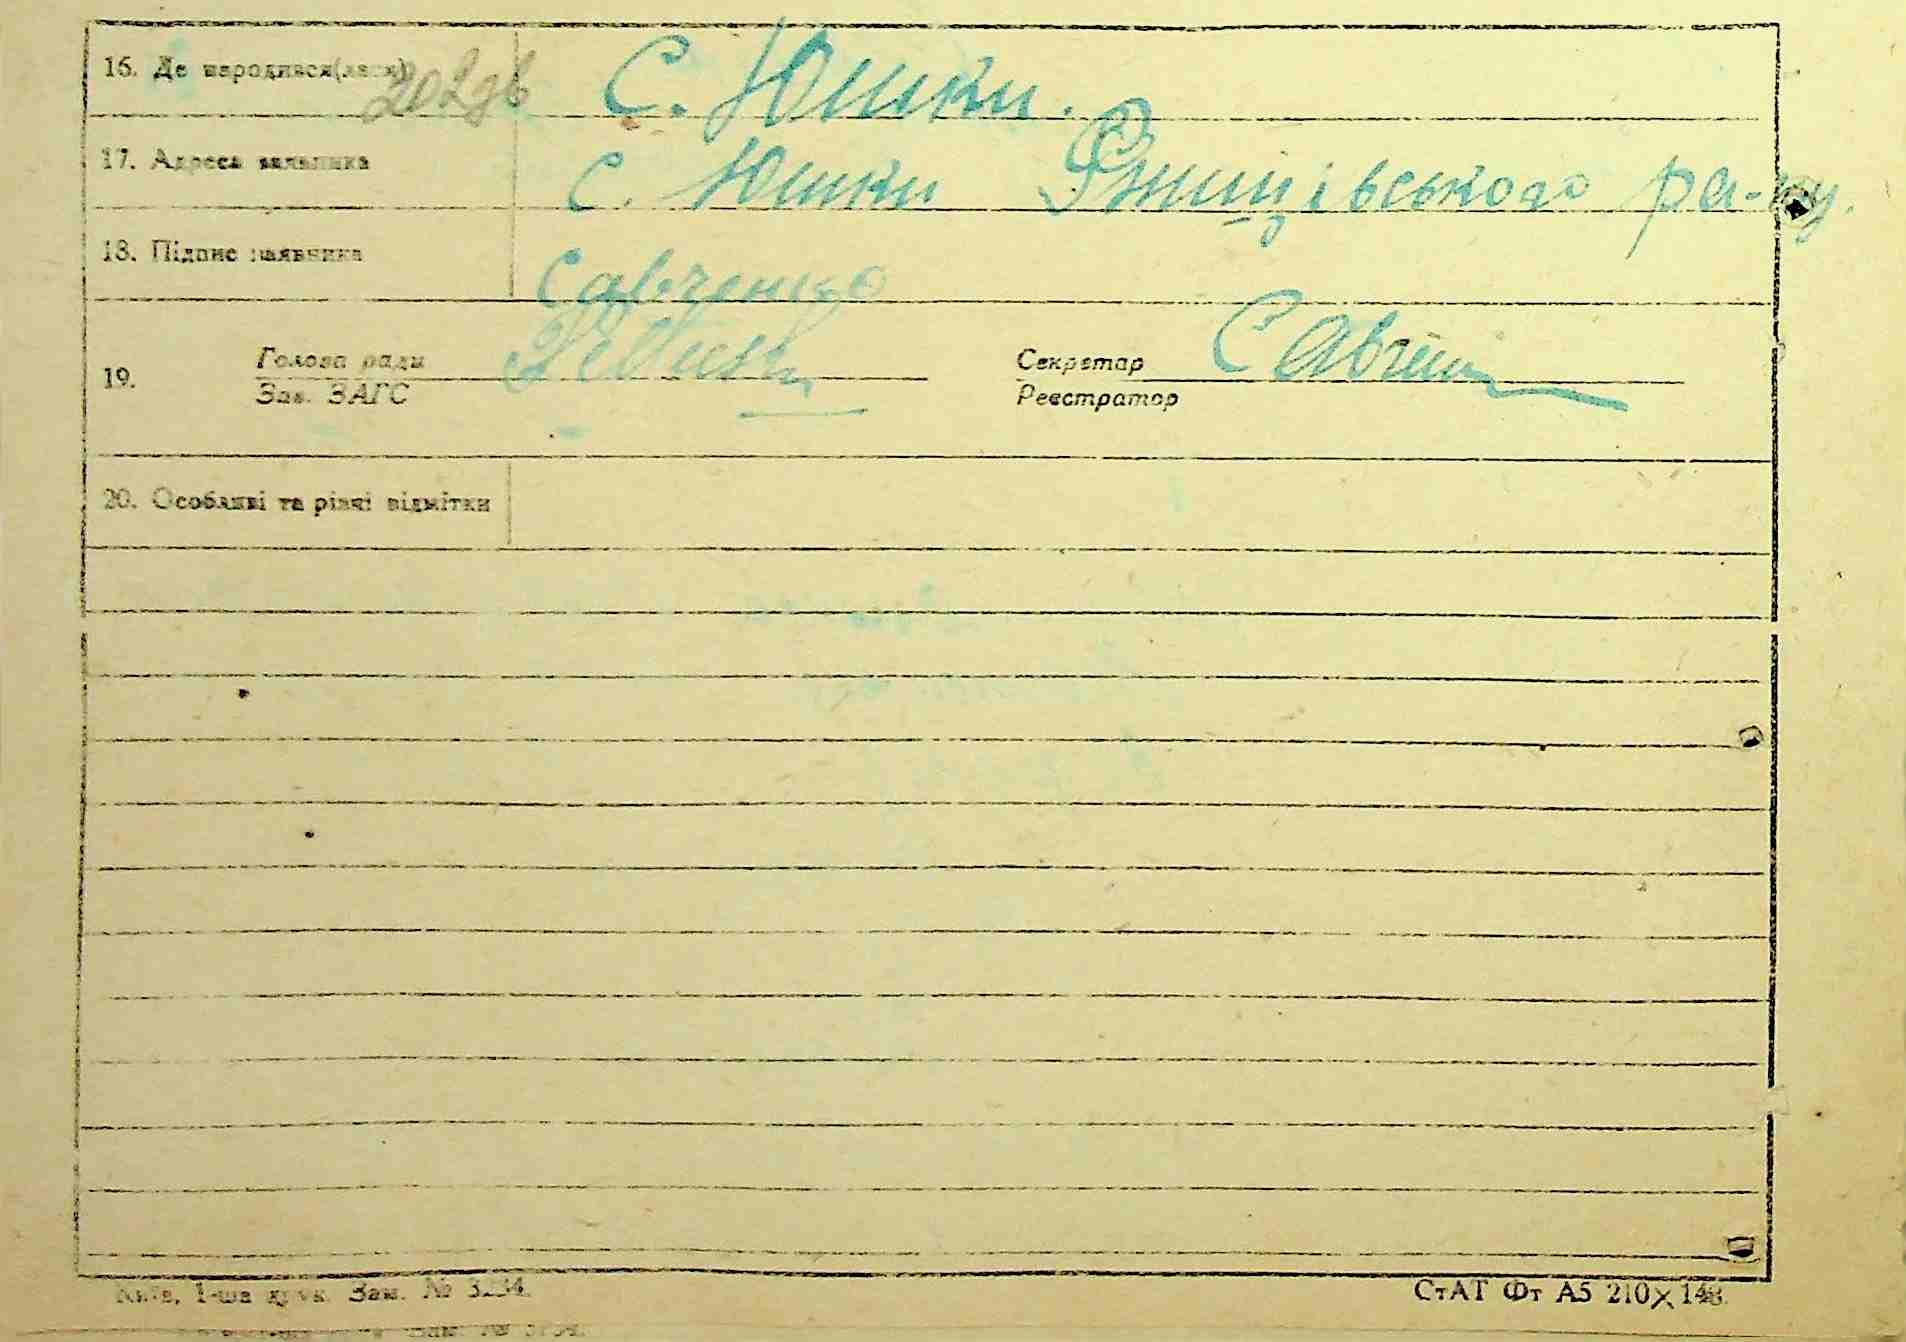 16. Де народився(лася) 202зв С. Юшки.
17. Адреса заявника с. Юшки Ржищівського ра-ну.
18. Підпис заявника Савченко
Голова ради Секретар
19.
Зав. ЗАГС Реєстратор
20. Особливі та різні відмітки
Київ, 1-ша друк. Зам. № 3234. СтАТ Фт А5 210×148.